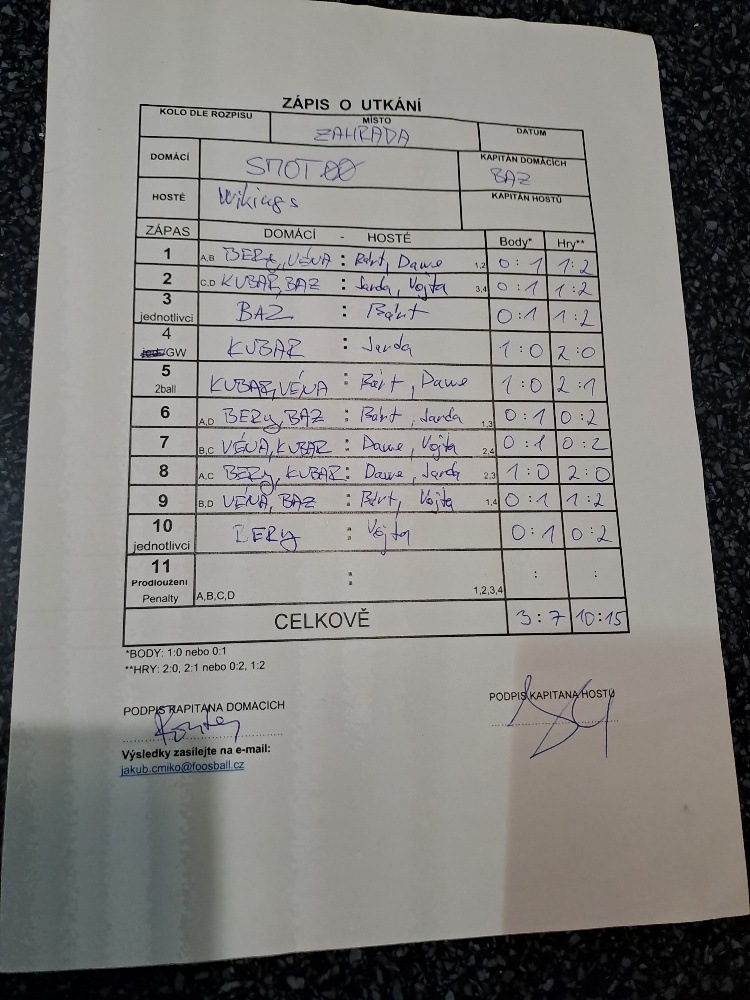 ZÁPIS O UTKÁNÍ
KOLO DLE ROZPISU MÍSTO DATUM
ZAHRADA
DOMÁCÍ KAPITÁN DOMÁCÍCH
BAZ
HOSTÉ Wikings KAPITÁN HOSTŮ
ZÁPAS DOMÁCÍ - HOSTÉ Body* Hry**
1 A,B BERY, VÉNA : Bárt, Dawe 1,2 0:1 1:2
2 C,D KUBAR, BAZ : Jarda, Vojta 3,4 0:1 1:2
3 jednotlivci BAZ : Bárt 0:1 1:2
4 /GW KUBAR : Jarda 1:0 2:0
5 2ball KUBAR, VÉNA : Bárt, Dawe 1:0 2:1
6 A,D BERY, BAZ : Bárt, Jarda 1,3 0:1 0:2
7 B,C VÉNA, KUBAR : Dawe, Vojta 2,4 0:1 0:2
8 A,C BERY, KUBAR : Dawe, Jarda 2,3 1:0 2:0
9 B,D VÉNA, BAZ : Bárt, Vojta 1,4 0:1 1:2
10 jednotlivci BERY : Vojta 0:1 0:2
11 Prodloužení Penalty A,B,C,D : 1,2,3,4 : :
CELKOVĚ 3:7 10:15
*BODY: 1:0 nebo 0:1
**HRY: 2:0, 2:1 nebo 0:2, 1:2
PODPIS KAPITANA DOMACICH PODPIS KAPITANA HOSTŮ
Výsledky zasílejte na e-mail:
jakub.cmiko@foosball.cz